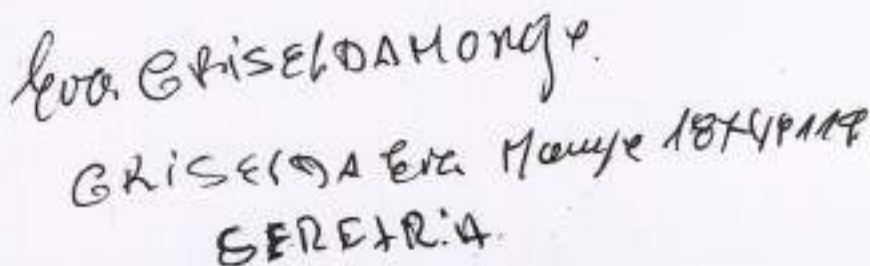 Eva GRISELDA MONge
GRISELDA Eva Monge
SERETRIA